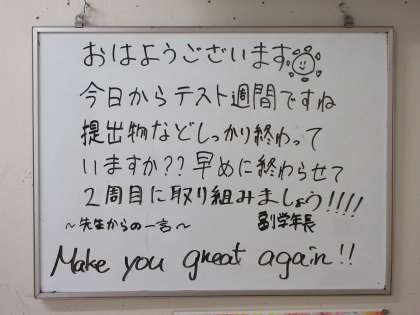 おはようございます
今日からテスト週間ですね
提出物などしっかり終わって
いますか??早めに終わらせて
2周目に取り組みましょう!!!!
~先生からの一言~ 副学年長
Make you great again!!